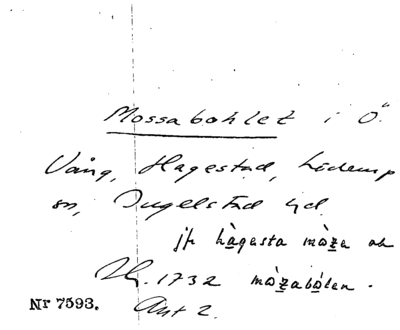 Mossabohlet i Ö.
Vång, Hagestad, Löderup
sn, Ingelstad hd.
jfr hàgesta mòẕa ab
1732 mòẕabolen.
Nr 7593. Akt 2.